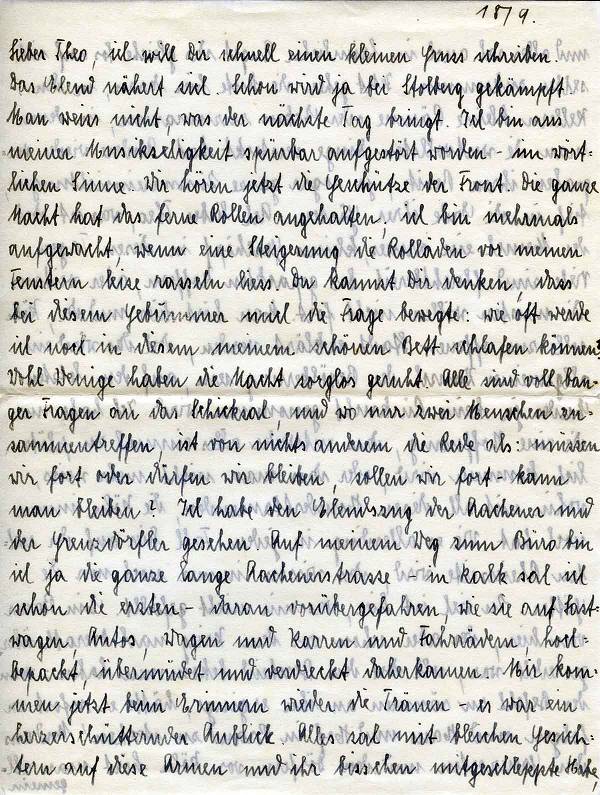 18/9.
Lieber Theo, ich will Dir schnell einen kleinen Gruss schreiben.
Das Elend nähert sich. Schon wird ja bei Stolberg gekämpft!
Man weiss nicht, was der nächste Tag bringt. Ich bin aus
meiner Musikseligkeit spürbar aufgestört worden - im wört-
lichen Sinne. Wir hören jetzt die Geschütze der Front. Die ganze
Nacht hat das ferne Rollen angehalten, ich bin mehrmals
aufgewacht, wenn eine Steigerung die Rolladen vor meinen
Fenstern leise rasseln liess. Du kannst Dir denken, dass
bei diesem Gebummer mich die Frage bewegte: wie oft werde
ich noch in diesem meinem schönen Bett schlafen können?
Wohl Wenige haben die Nacht sorglos geruht. Alle sind voll ban-
ger Fragen an das Schicksal, und wo nur zwei Menschen zu-
sammentreffen, ist von nichts anderem die Rede als: müssen
wir fort oder dürfen wir bleiben, sollen wir fort - kann
man bleiben? Ich habe den Elendszug der Aachener und
der Grenzdörfler gesehen. Auf meinem Weg zum Büro bin
ich ja die ganze lange Aachenerstrasse - in Kalk sah ich
schon die ersten - daran vorübergefahren, wie sie auf Last-
wagen, Autos, Wagen und Karren und Fahrrädern, hoch-
bepackt, übermüdet und verdreckt daherkamen. Mir kom-
men jetzt beim Erinnern wieder die Tränen - es war ein
herzerschütternder Anblick. Alles sah mit bleichen Gesich-
tern auf diese Armen und ihr bisschen mitgeschleppte Habe,